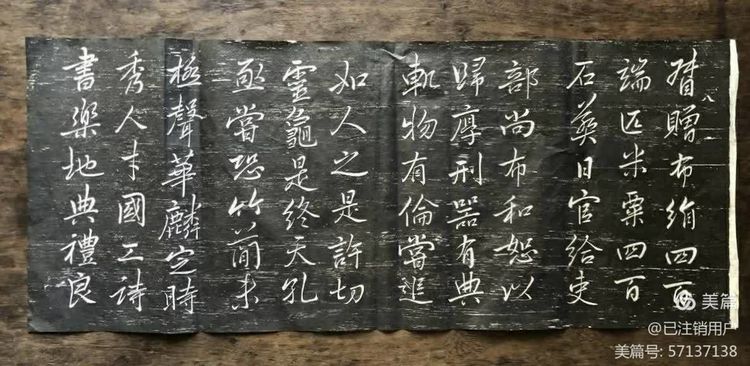 贈布絹四百
端匹米粟四百
石葬日官給吏
部尚布和恕以
歸厚刑器有典
軌物有倫當進
如人之是許切
靈龜是終天孔
嘗恐竹簡未
極聲華麟定時
秀人才國工詩
書樂地典禮良
美篇
@已注销用户
美篇号: 57137138